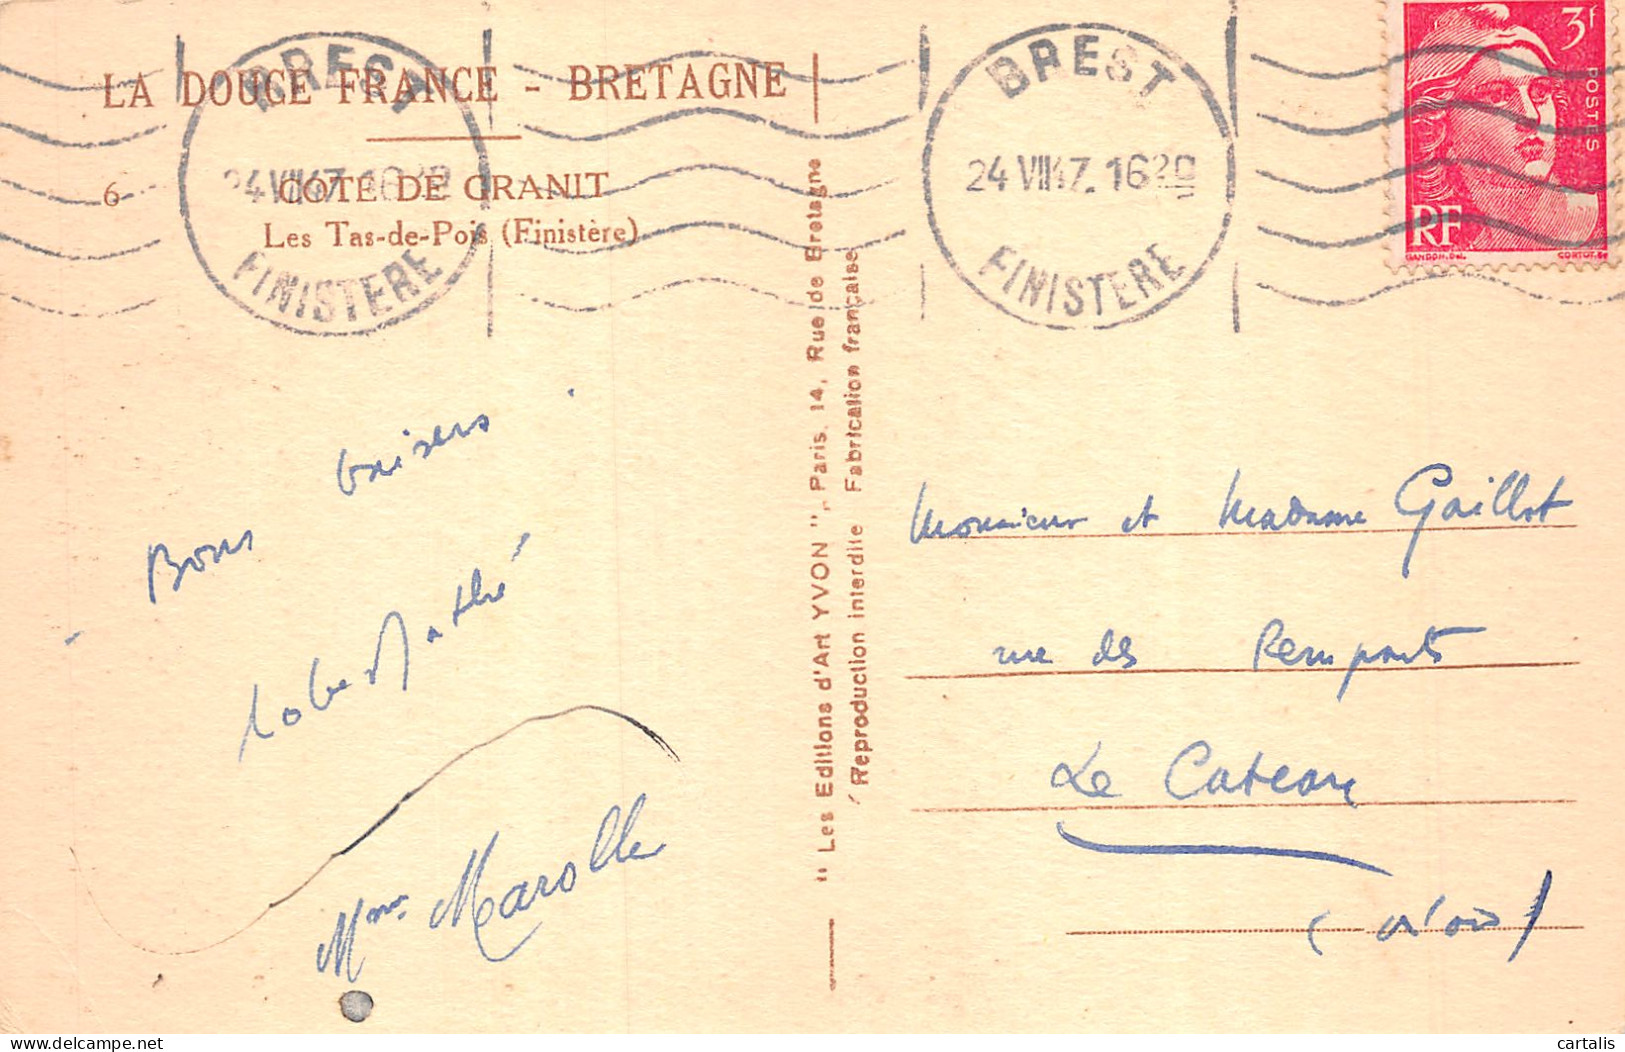 LA DOUCE FRANCE - BRETAGNE
6 - COTE DE GRANIT
Les Tas-de-Pois (Finistère)
BREST
24 VII 47. 16 30
FINISTERE
BREST
24 VII 47. 16 30
FINISTERE
3f
POSTES
RF
GANDON.Del.
CORTOT.Sc
"Les Editions d'Art YVON", Paris, 14, Rue de Bretagne
Reproduction interdite Fabrication française
Bons baisers
Robert
Mme Marolle
Monsieur et Madame Gaillot
rue des Remparts
Le Cateau
(Nord)
delcampe.net
cartalis